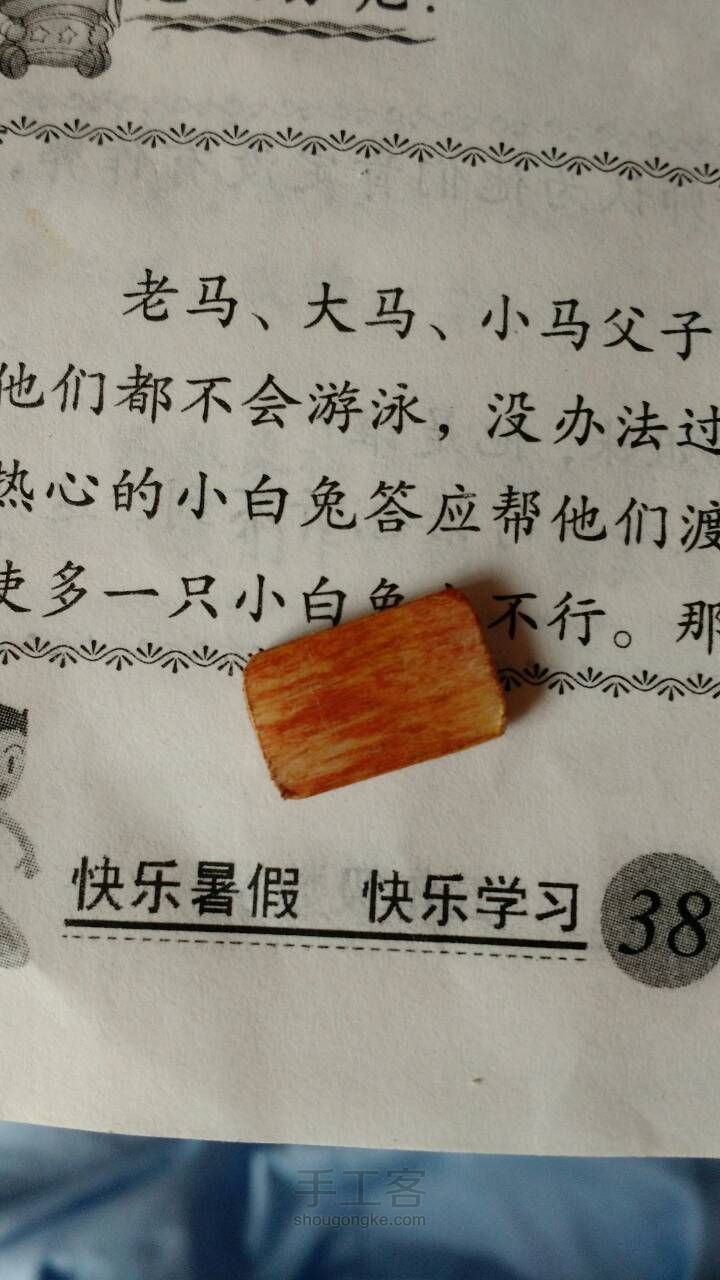 老马、大马、小马父子
他们都不会游泳，没办法过
热心的小白兔答应帮他们渡
使多一只小白兔不行。那
快乐暑假 快乐学习 38
手工客
shougongke.com